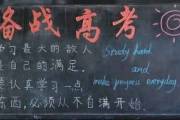 备战高考
学习最大的敌人
是自己的满足.
要认真学习一点
东西,必须从不自满开始.
Study hard
and
make progress everyday